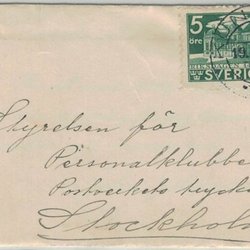 5
öre
RIKSDAGEN
SVERIGE
Styrelsen för
Personalklubben
Postverkets tryck
Stockholm